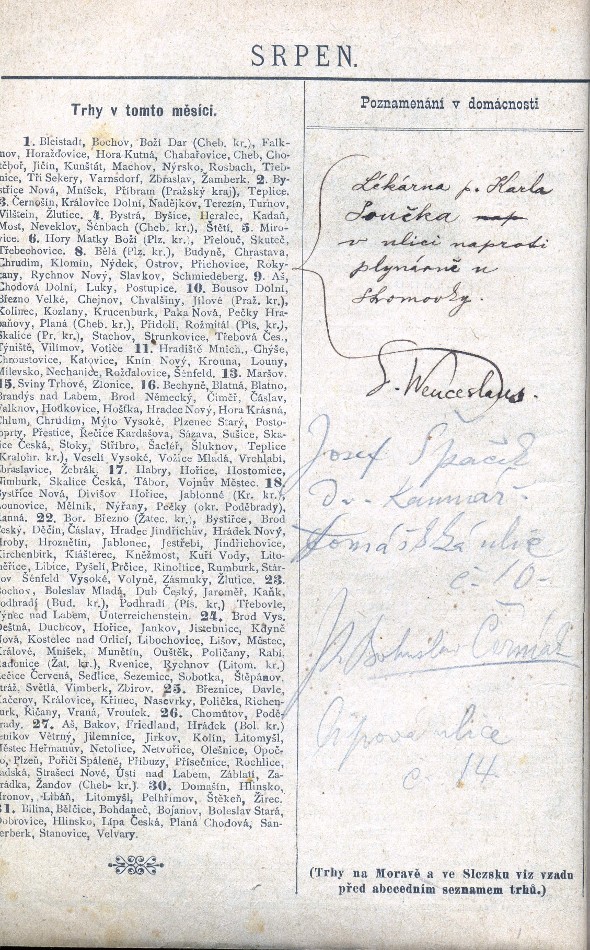 SRPEN.
Trhy v tomto měsíci.
1. Bleistadt, Bochov, Boží Dar (Cheb. kr.), Falk-
nov, Horažďovice, Hora Kutná, Chabařovice, Cheb, Cho-
těboř, Jičín, Kunštát, Machov, Nýrsko, Rosbach, Třeb-
nice, Tři Sekery, Varnsdorf, Zbraslav, Žamberk. 2. By-
střice Nová, Mníšek, Příbram (Pražský kraj), Teplice.
3. Černošín, Královice Dolní, Nadějkov, Terezín, Turnov,
Vilštein, Žlutice. 4. Bystrá, Byšice, Heralec, Kadaň,
Most, Neveklov, Šénbach (Cheb. kr.), Štětí. 5. Miro-
vice. 6. Hory Matky Boží (Plz. kr.), Přelouč, Skuteč,
Třebechovice. 8. Bělá (Plz. kr.), Budyně, Chrastava,
Chrudim, Klomín, Nýdek, Ostrov, Přichovice, Roky-
cany, Rychnov Nový, Slavkov, Schmiedeberg. 9. Aš,
Chodová Dolní, Luky, Postupice. 10. Bousov Dolní,
Březno Velké, Chejnov, Chvalšiny, Jílové (Praž. kr.),
Kolinec, Kozlany, Krucenburk, Paka Nová, Pečky Hra-
baňovy, Planá (Cheb. kr.), Přídolí, Rožmitál (Pís. kr.),
Skalice (Pr. kr.), Stachov, Strunkovice, Třebová Čes.,
Týniště, Vilímov, Votice 11. Hradiště Mnich., Chýše,
Chroustovice, Katovice, Knín Nový, Krouna, Louny,
Milevsko, Nechanice, Rožďalovice, Šénfeld. 13. Maršov.
15. Sviny Trhové, Zlonice. 16. Bechyně, Blatná, Blatno,
Brandýs nad Labem, Brod Německý, Čiměř, Čáslav,
Falknov, Hodkovice, Hošťka, Hradec Nový, Hora Krásná,
Chlum, Chrudim, Mýto Vysoké, Plzenec Starý, Posto-
loprty, Přeštice, Řečice Kardašova, Sázava, Sušice, Ska-
lice Česká, Stoky, Stříbro, Šacléř, Šluknov, Teplice
(Kralohr. kr.), Veselí Vysoké, Vožice Mladá, Vrchlabí,
Zbraslavice, Žebrák. 17. Habry, Hořice, Hostomice,
Nimburk, Skalice Česká, Tábor, Vojnův Městec. 18.
Bystřice Nová, Divišov Hořice, Jablonné (Kr. kr.),
Lounovice, Mělník, Nýřany, Pečky (okr. Poděbrady),
Ranná. 22. Bor. Březno (Žatec. kr.), Bystřice, Brod
Český, Děčín, Čáslav, Hradec Jindřichův, Hrádek Nový,
Hroby, Hroznětín, Jablonec, Jestřebí, Jindřichovice,
Kirchenbirk, Klášterec, Kněžmost, Kuří Vody, Lito-
měřice, Libice, Pyšelí, Prčice, Rinoltice, Rumburk, Stár-
kov Šénfeld Vysoké, Volyně, Zásmuky, Žlutice. 23.
Bochov, Boleslav Mladá, Dub Český, Jaroměř, Kaňk,
Podhradí (Bud. kr.), Podhradí (Pís. kr.) Třebovle,
Týnec nad Labem, Unterreichenstein. 24. Brod Vys.
Deštná, Duchcov, Hořice, Jankov, Jistebnice, Kdyně
Nová, Kostelec nad Orlicí, Libochovice, Lišov, Městec,
Králové, Mníšek, Munětín, Ouštěk, Poličany, Rabí.
Radonice (Žat. kr.), Rvenice, Rychnov (Litom. kr.)
Řečice Červená, Sedlice, Sezemice, Sobotka, Štěpánov,
Stráž, Světlá, Vimberk, Zbirov. 25. Březnice, Davle,
Kačerov, Královice, Křinec, Nasevrky, Polička, Richen-
burk, Říčany, Vraná, Vroutek. 26. Chomútov, Podě-
brady. 27. Aš, Bakov, Friedland, Hrádek (Bol. kr.)
Jeníkov Větrný, Jilemnice, Jirkov, Kolín, Litomyšl,
Městec Heřmanův, Netolice, Netvořice, Olešnice, Opoč-
no, Plzeň, Poříčí Spálené, Příbuzy, Přísečnice, Rochlice,
Sadská, Strašecí Nové, Ústí nad Labem, Záblatí, Za-
hrádka, Žandov (Cheb- kr.). 30. Domašín, Hlinsko,
Hronov, Libáň, Litomyšl, Pelhřimov, Štěkeň, Žireč.
31. Bílina, Bělčice, Bohdaneč, Bojanov, Boleslav Stará,
Dobrovice, Hlinsko, Lípa Česká, Planá Chodová, San-
gerberk, Stanovice, Velvary.
Poznamenání v domácnosti
Lékárna p. Karla
Součka nap
v ulici naproti
plynárně u
Stromovky.
S. Wenceslaus.
Josef Špaček
Dr. Kammar.
Tomášská ulic
č. 10.
Bohuslav Čermák
Ostrova ulice
č. 14.
(Trhy na Moravě a ve Slezsku viz vzadu
před abecedním seznamem trhů.)